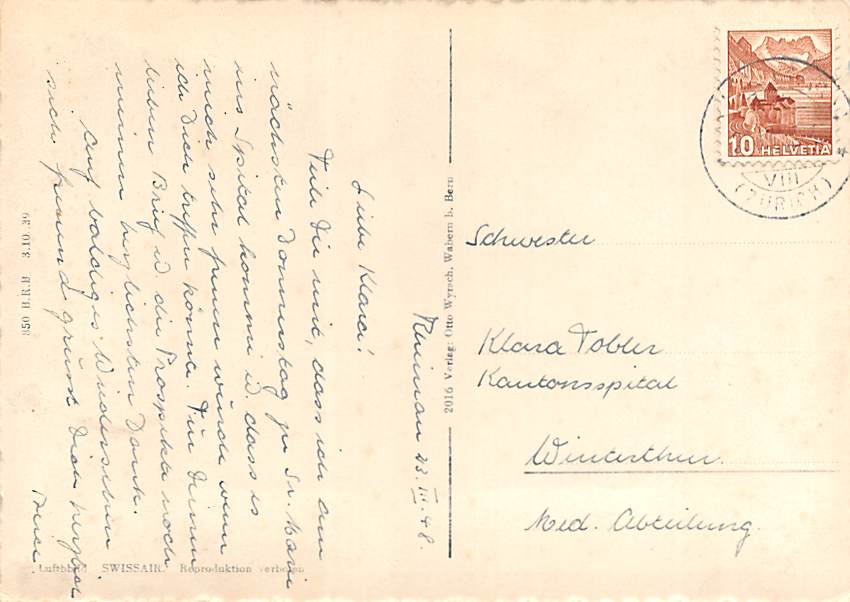 Rheinau 23. III. 48.
Liebe Klara!
Teile Dir mit, dass ich am
nächsten Donnerstag zu Sr. Marie
ins Spital komme u. dass es
mich sehr freuen würde wenn
ich Dich treffen könnte. Für Deinen
lieben Brief u. die Prospekte noch
meinen herzlichsten Dank.
Auf baldiges Wiedersehen
sich freuend grüsst Dich herzlich
850 B.R.B 3.10.39
Luftbild SWISSAIR. Reproduktion verboten
2016 Verlag: Otto Wyrsch, Wabern b. Bern
10 HELVETIA
VIII
(ZÜRICH)
Schwester
Klara Tobler
Kantonsspital
Winterthur.
Med. Abteilung.